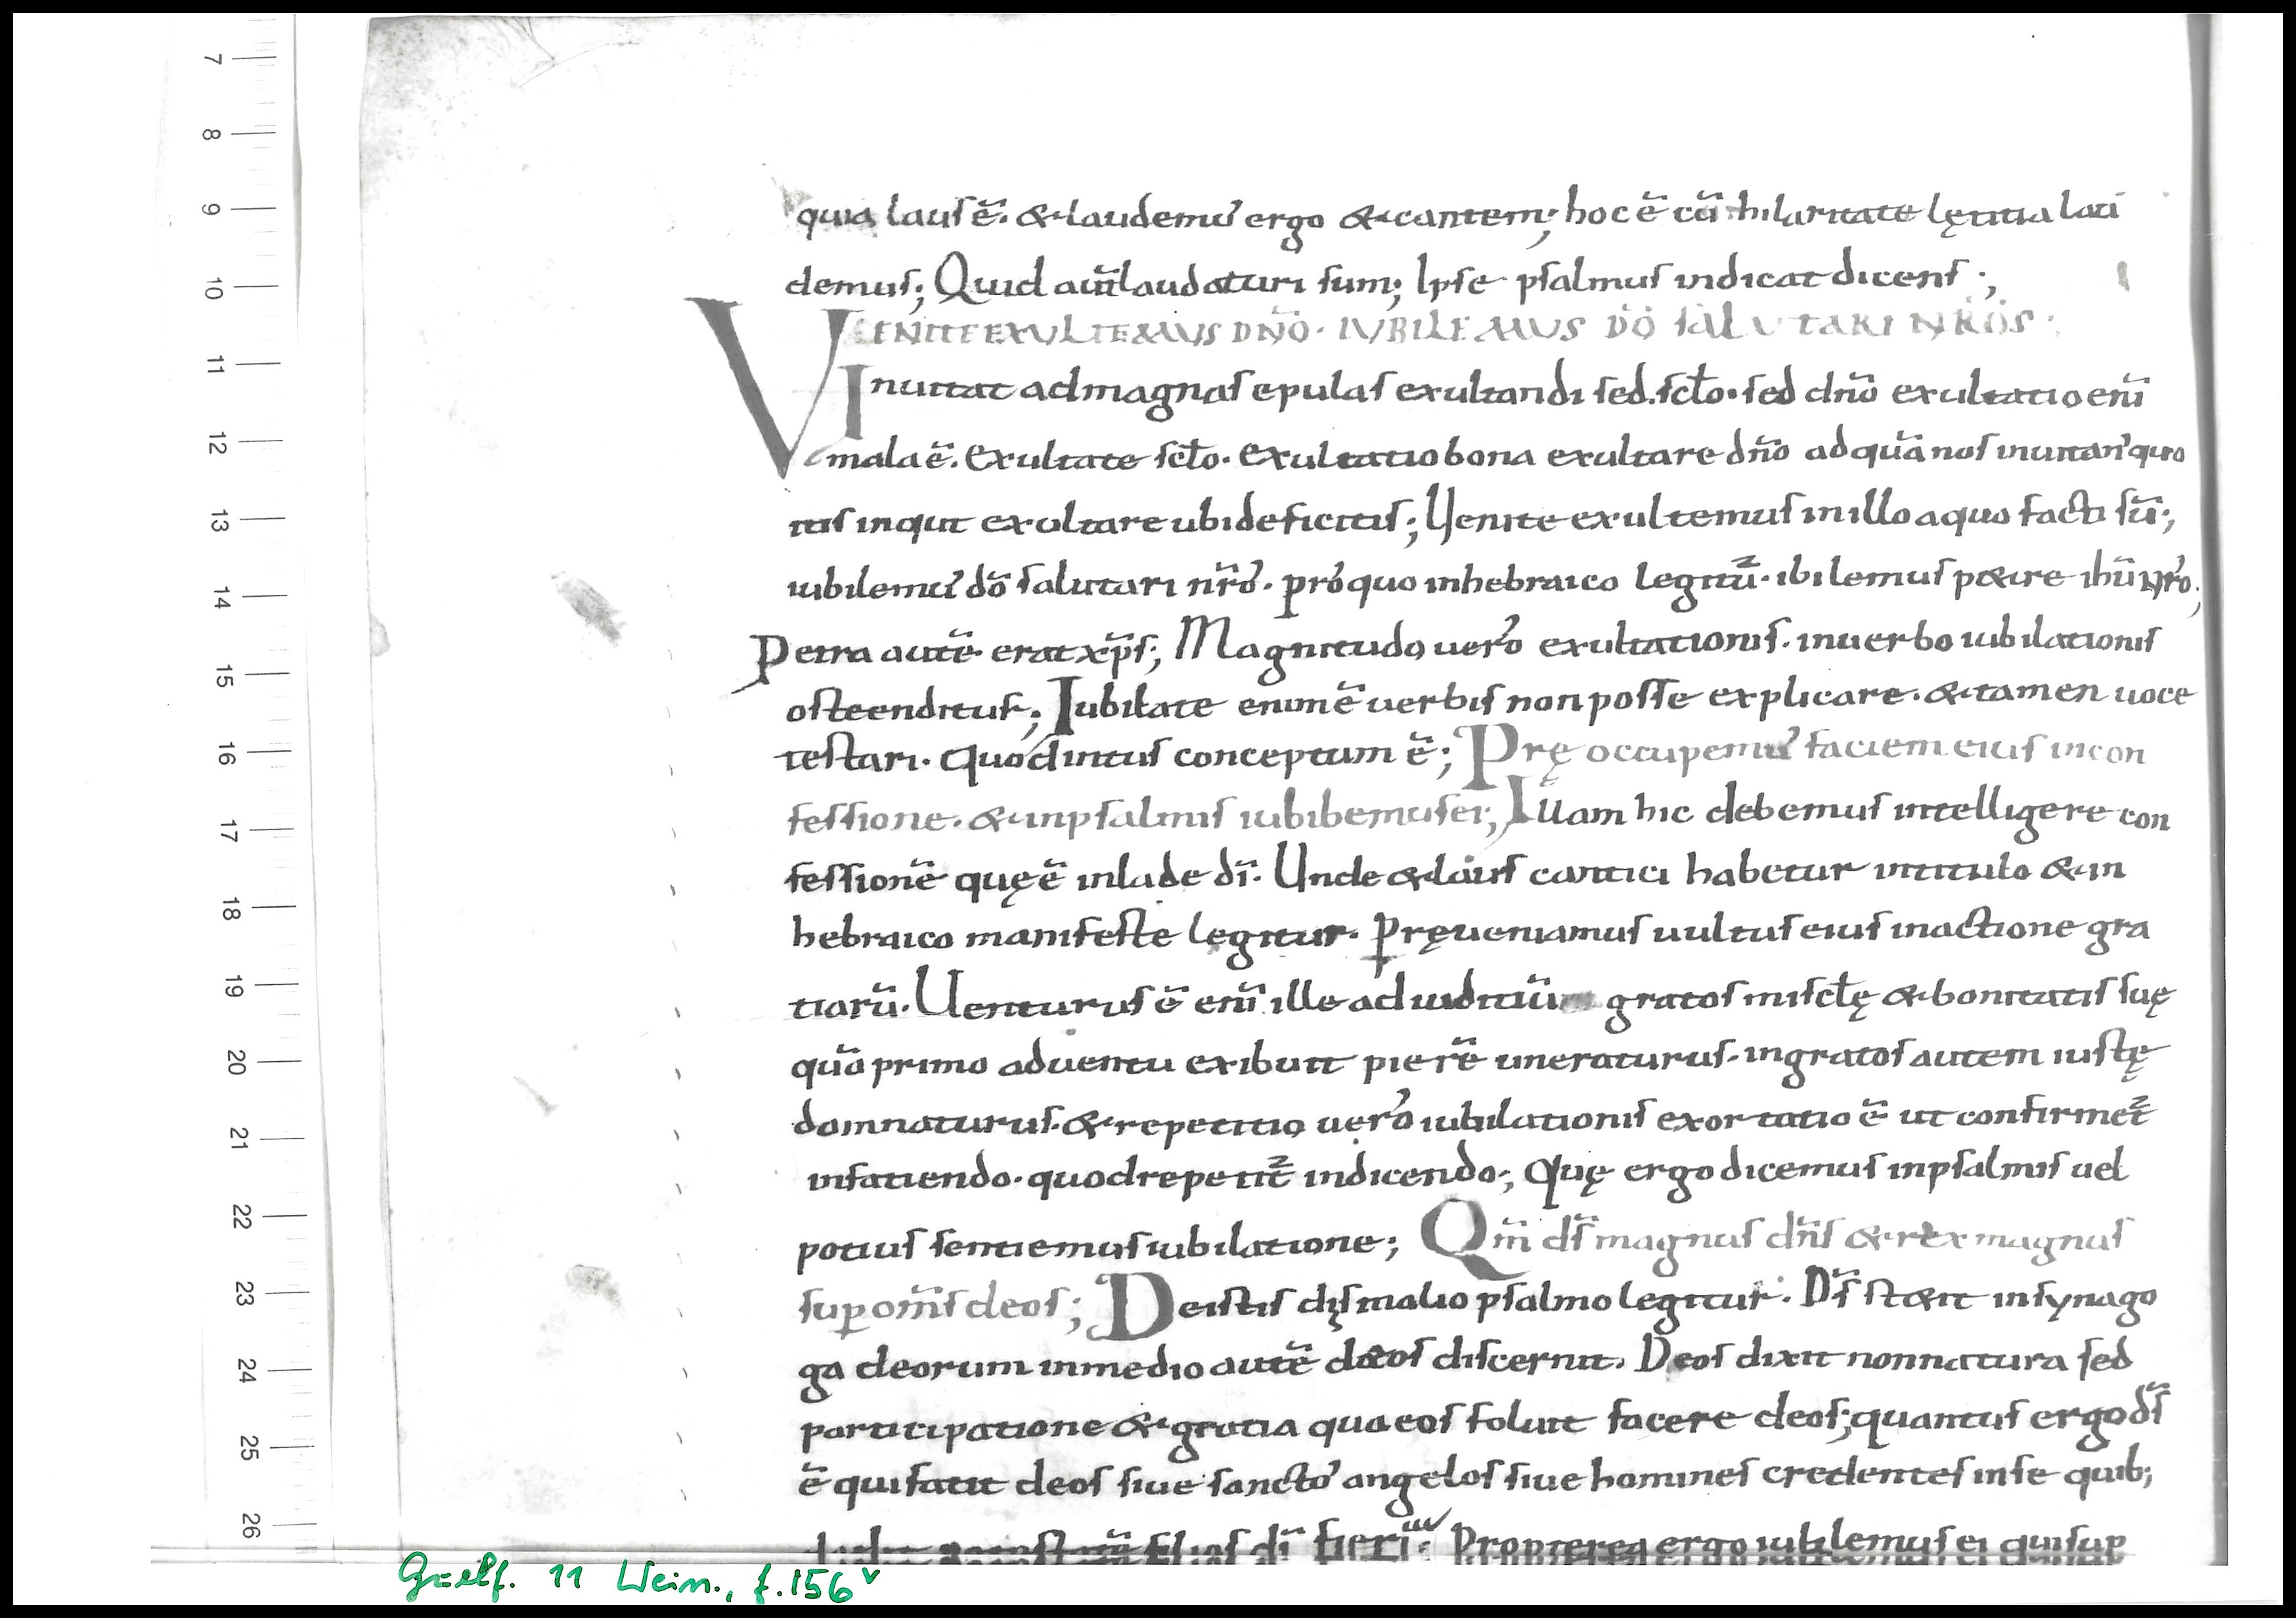 7
8
9
10
11
12
13
14
15
16
17
18
19
20
21
22
23
24
25
26
quia lauſ ē. & laudemuſ ergo & cantem; hoc ē cū hilaritate lętitia lau
demuſ; Quid aūt laudaturi ſum; Ipſe pſalmuſ indicat dicenſ;
VENITE EXULTEMUS DÑO. IVBILEMUS DŌ SALVTARI NRŌS;
Inuitat ad magnaſ epulaſ exultandi ſed. ſclo. ſed dño exultatio enī
mala ē. exultate ſclo. exultatio bona exultare dño ad quā noſ inuitar' quo
tuſ inquit exultare ubi deficitiſ; Uenite exultemuſ in illo a quo facti ſū;
iubilemuſ dō ſalutari nr̄o. pro quo in hebraico legitū. ibilemuſ p&re ihū nr̄o;
Petra autē erat xp̄ſ; Magnitudo uero exultationiſ. in uerbo iubilationiſ
oſteenditur; Iubilate enim ē uerbiſ non poſſe explicare. & tamen uoce
teſtari. quod intuſ conceptum ē; Prę occupemuſ faciem eiuſ in con
feſſione. & in pſalmiſ iubibemuſ ei; Illam hic debemuſ intelligere con
feſſionē quę ē in lade dī. Unde & lauſ cantici habetur in titulo & in
hebraico manifeſte legitur. Pręueniamuſ uultuſ eiuſ in actione gra
tiarū. Uenturuſ ē enī ille ad iuditiū gratoſ miſclę & bonitatiſ ſuę
quā primo aduentu exibuit pie rē uneraturuſ. ingratoſ autem iuſtę
damnaturuſ. & repetitio uero iubilationiſ exortatio ē ut confirmet
in fatiendo. quod repetit in dicendo; Quę ergo dicemuſ in pſalmiſ uel
potiuſ ſentiemuſ iubilatione; Qm̄ dſ̄ magnuſ dn̄ſ & rex magnuſ
ſup om̄ſ deoſ; De iſtiſ diſ in alio pſalmo legitur. Dſ̄ ſt&it in ſynago
ga deorum in medio autē deoſ diſcernit. Deoſ dixit non natura ſed
participatione & gratia qua eoſ foluit facere deoſ; quantuſ ergo dſ̄
ē qui fatit deoſ ſiue ſancto' angeloſ ſiue homineſ credenteſ in ſe quib;
filioſ dī fieri; Propterea ergo iubilemuſ ei qui ſup
Guelf. 11 Weim., f. 156v